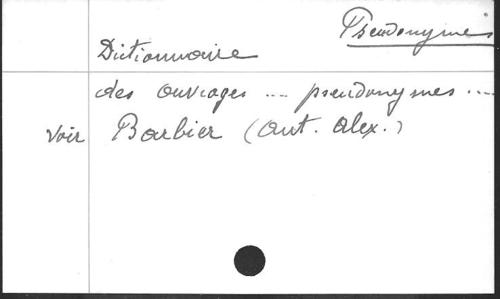 Pseudonymes
Dictionnaire
des ouvrages ... pseudonymes ....
voir Barbier (Ant. Alex.)